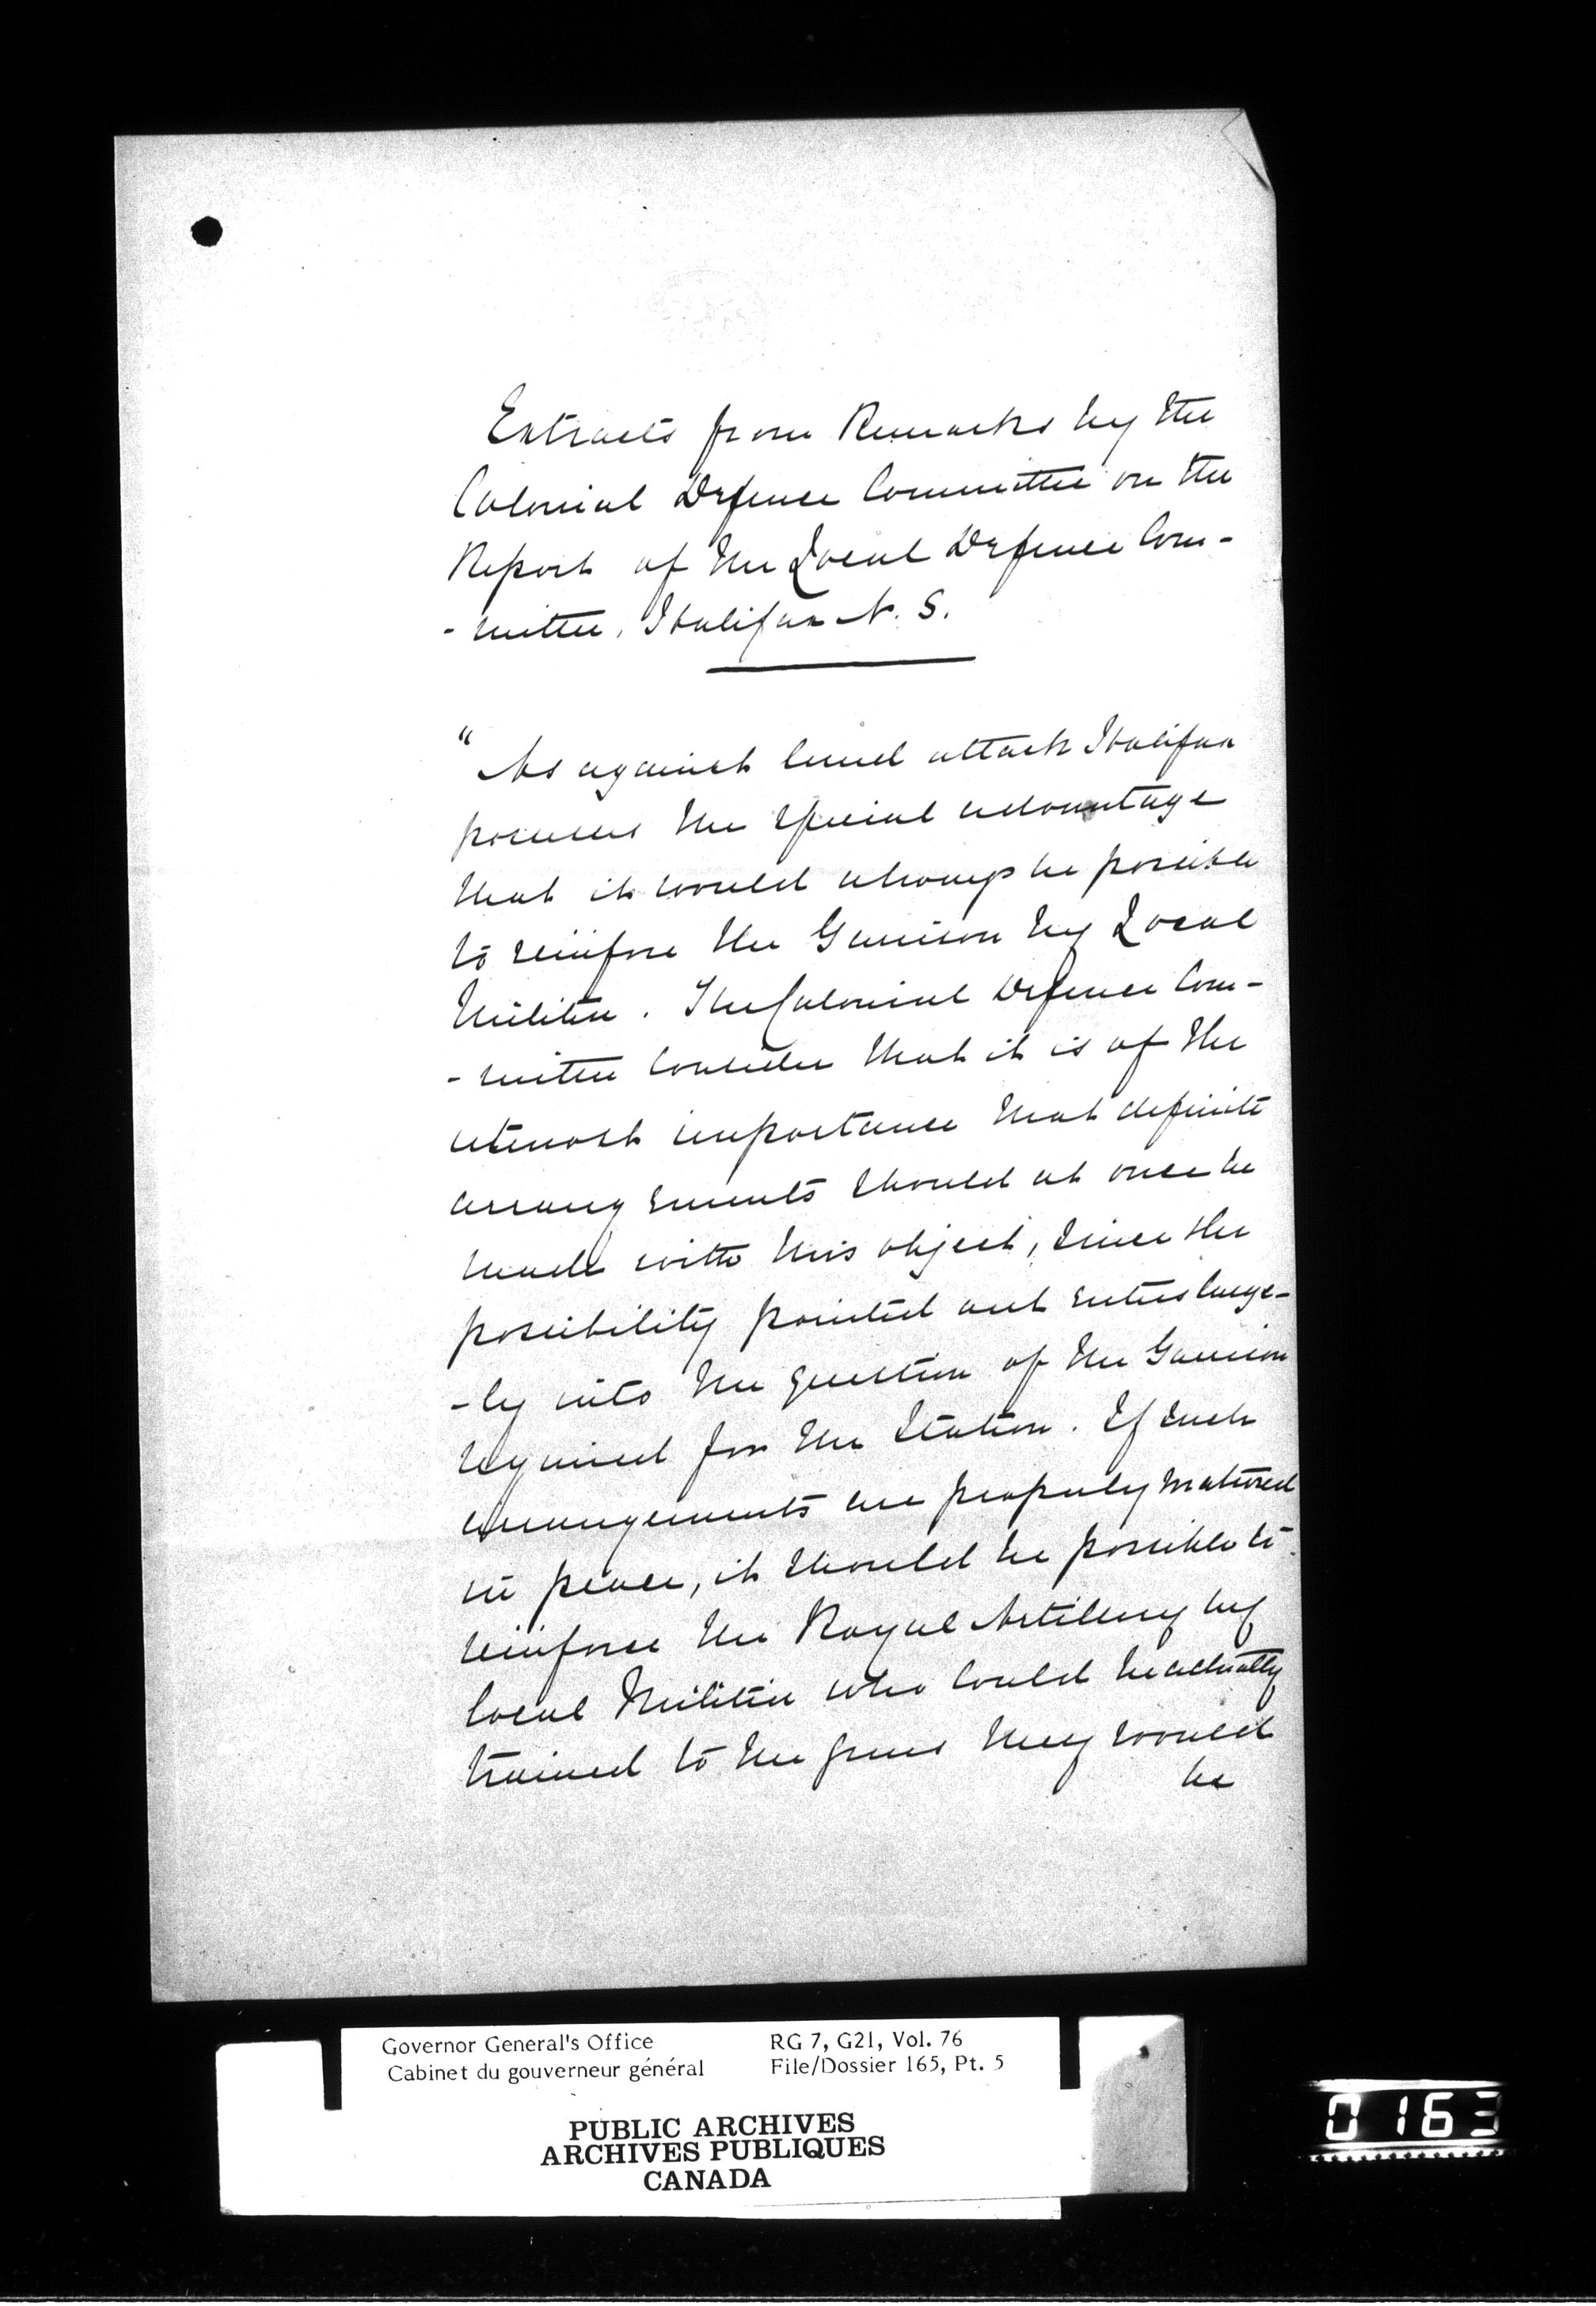 Extracts from Remarks by the
Colonial Defence Committee on the
Report of the Local Defence Com-
-mittee, Halifax N. S.
"As against land attack Halifax
possesses the special advantage
that it would always be possible
to reinforce the Garrison by Local
Militia. The Colonial Defence Com-
-mittee consider that it is of the
utmost importance that definite
arrangements should at once be
made with this object, since the
possibility pointed out enters large-
-ly into the question of the Garrison
required for the Station. If such
arrangements are properly matured
in peace, it should be possible to
reinforce the Royal Artillery by
local Militia who could be actually
trained to the guns they would
be
Governor General's Office RG 7, G21, Vol. 76
Cabinet du gouverneur général File/Dossier 165, Pt. 5
PUBLIC ARCHIVES
ARCHIVES PUBLIQUES
CANADA
0163